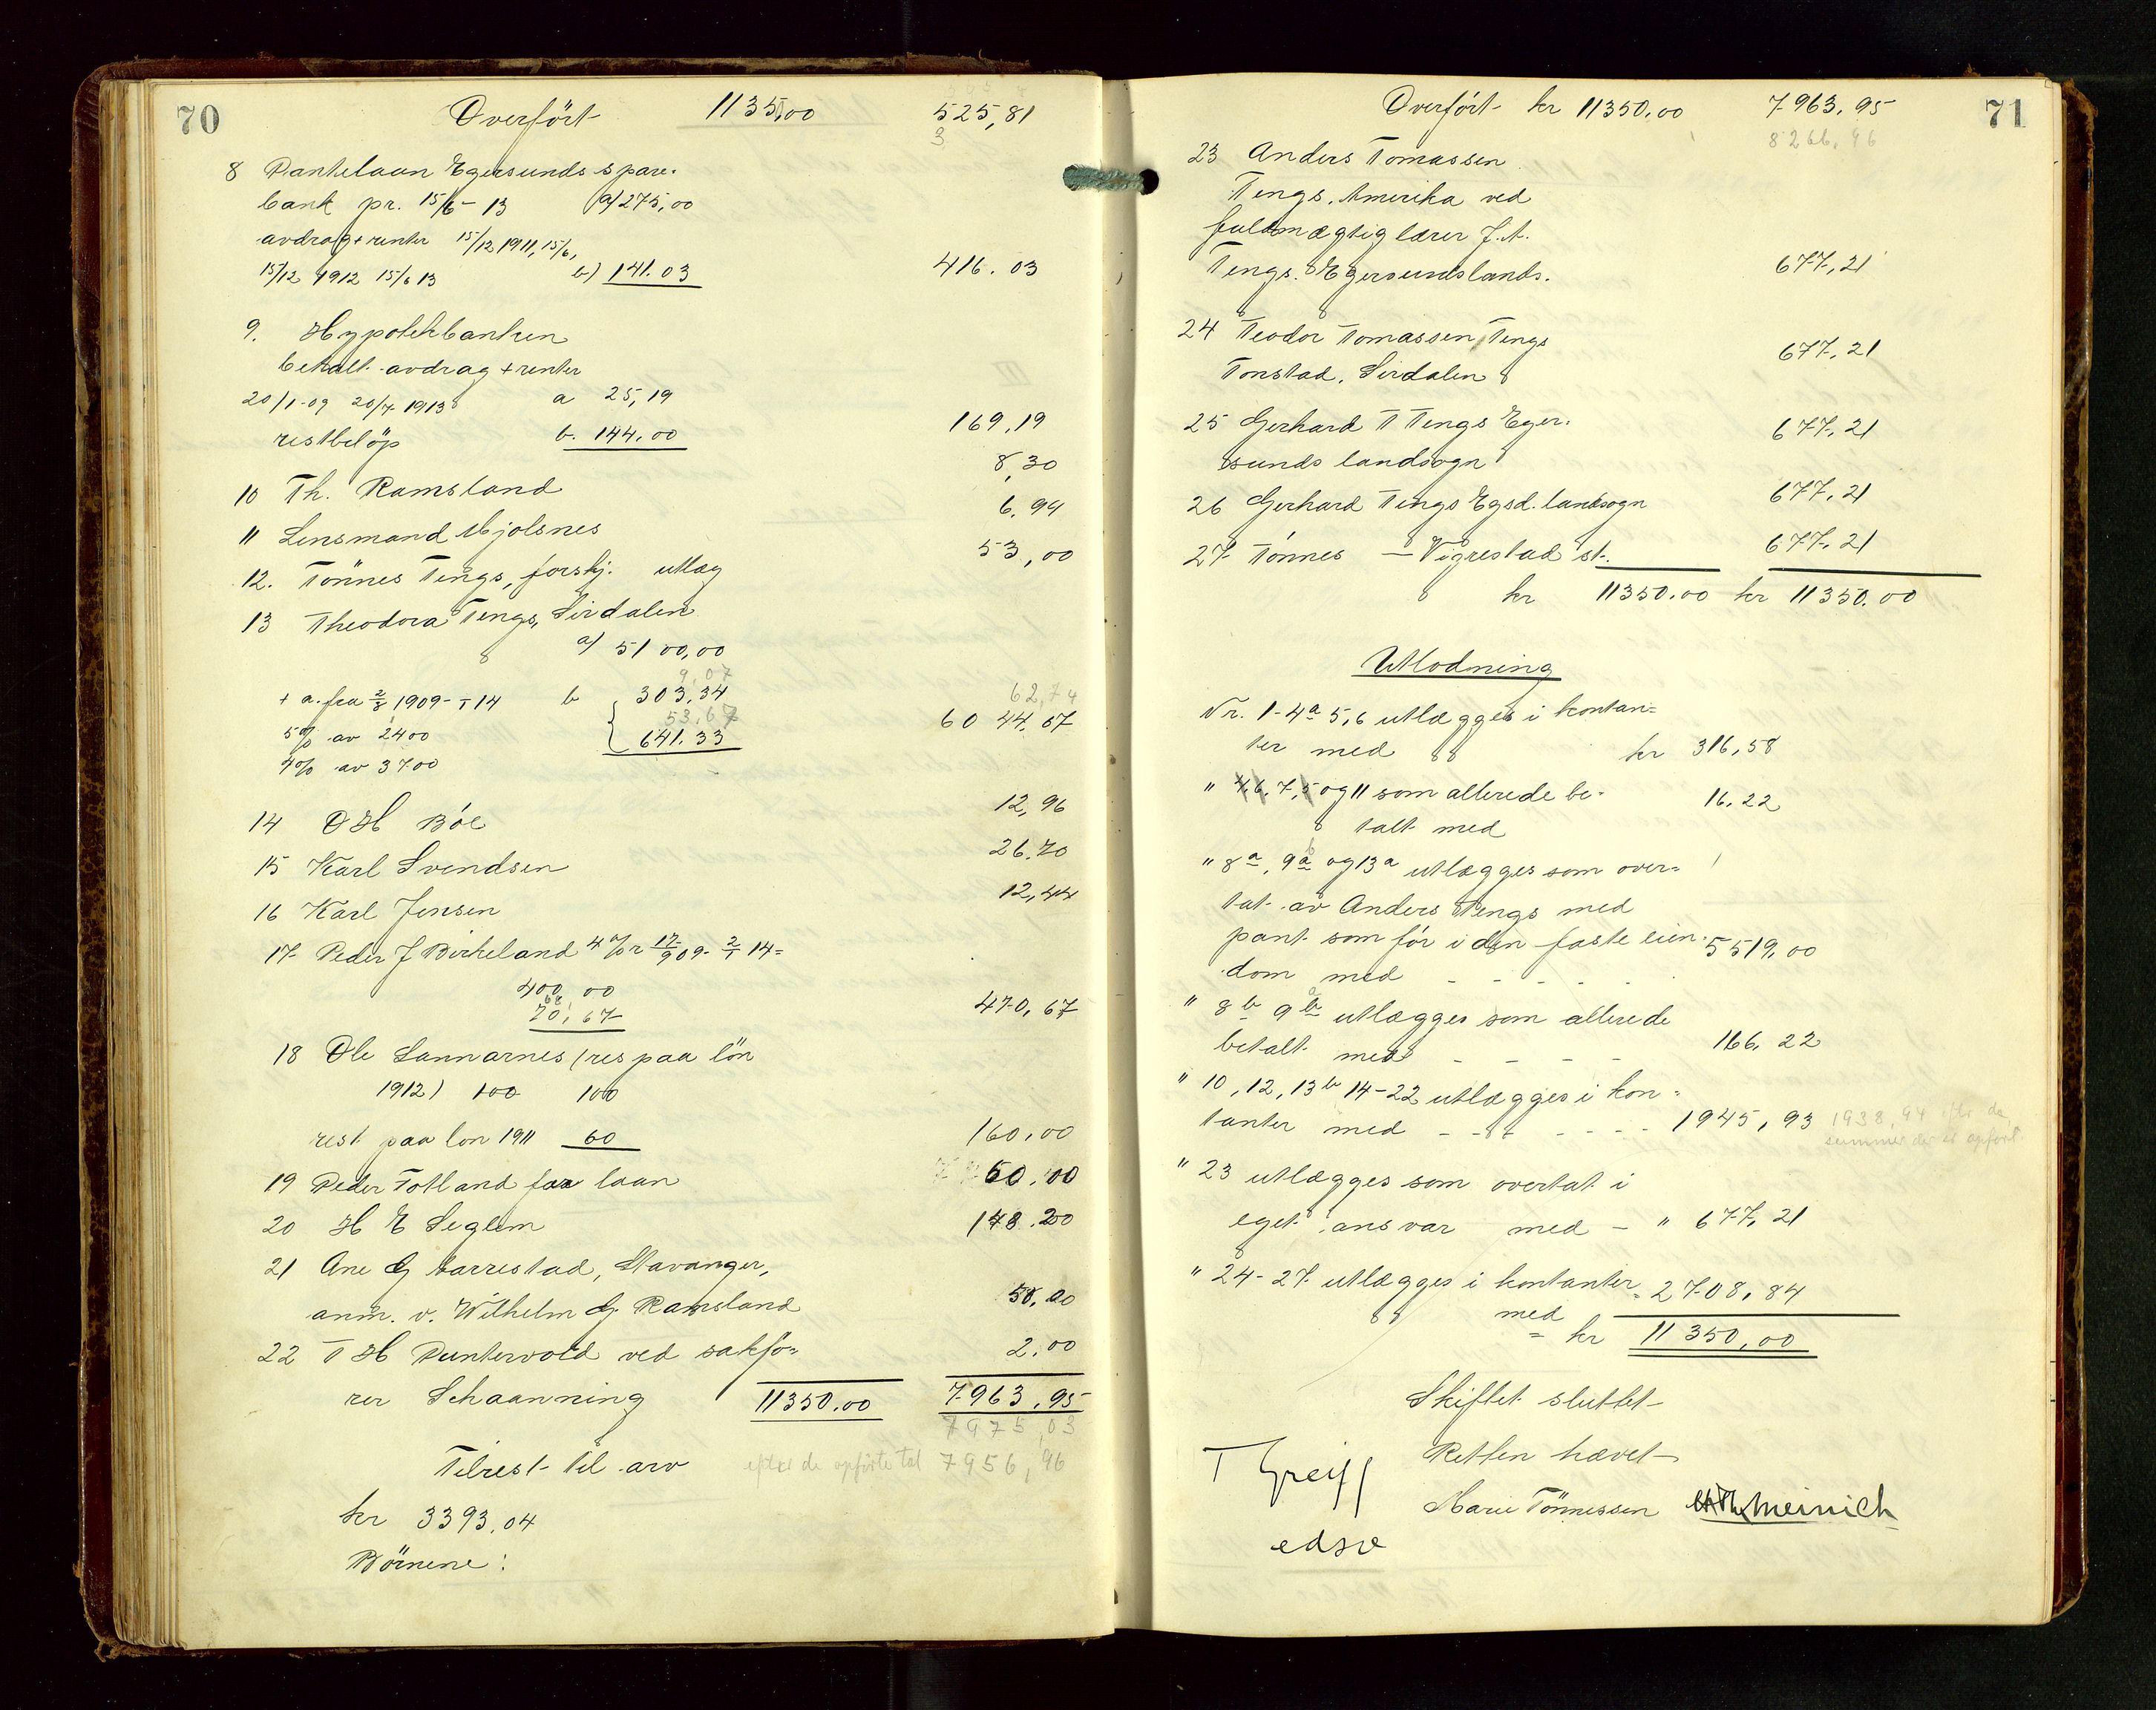 70
Overfört 11350,00 525,81
3
8 Pantelaan Egersunds spare-
bank pr. 15/6 - 13 a) 275,00
avdrag + renter 15/12 1911, 15/6,
15/12 1912 15/6 13 b) 141.03 416.03
9. Hypotekbanken
betalt avdrag + renter
20/1-09 20/7 1913 a 25,19
restbelöp b. 144.00 169,19
10 Th. Ramsland 8,30
11 Lensmand Mjolsnes 6,94
12. Tönnes Tengs, forskj. utlæg 53,00
13 Theodora Tengs, Sirdalen
a) 5100,00
9.07
+ a. fra 2/8 1909 - 14 b 303,34 62,74
53.67
5% av 2400 641.33 6044,67
4% av 3700
14 O H Böe 12,96
15 Karl Svendsen 26.70
16 Karl Jensen 12,44
17 Peder J Birkeland 4% r 17/9 09 - 2/1 14 =
400,00
68
70,67 470,67
18 Ole Sannarnes (res paa lön
1912) 100 100
rest paa lon 1911 60 160,00
19 Peder Totland for laan 60,00
20 H E Seglem 148.20
21 Ane G Aarrestad, Stavanger,
anm. v. Wilhelm G. Ramsland 58,00
22 T H Puntervold ved sakfö-
rer Schaanning 2.00
11350.00 7963,95
7975,03
Tilrest til arv efter de opförte tal 7956,96
kr 3393,04
Börnene:
71
Overfört kr 11350.00 7963.95
8266,96
23 Anders Tomassen
Tengs, Amerika ved
fuldmægtig lærer J. A.
Tengs. Egersundslands. 677,21
24 Teodor Tomassen Tengs
Tonstad, Sirdalen 677,21
25 Gerhard T Tengs Eger-
sunds landsogn 677,21
26 Gerhard Tengs Egsd. landsogn 677,21
27 Tönnes — Vigrestad st. 677,21
kr 11350.00 kr 11350.00
Utlodning
Nr. 1-4a 5,6 utlægges i kontan-
ter med kr 316,58
" 7, og 11 som allerede be-
talt med 16.22
" 8a, 9b og 13a utlægges som over-
tat av Anders Tengs med
pant som för i den faste eien-
dom med - - - - - 5519,00
" 8b 9a utlægges som allerede
betalt med - - - - 166,22
" 10, 12, 13b 14-22 utlægges i kon-
tanter med - - - - - - 1945,93 1938,94 efter de
summer der er opfört
" 23 utlægges som overtat i
eget ansvar med - " 677,21
" 24-27 utlægges i kontanter
med 2708,84
= kr 11350,00
Skiftet sluttet
Retten hævet
T Greiff
edsv
Marie Tönnessen Meinich